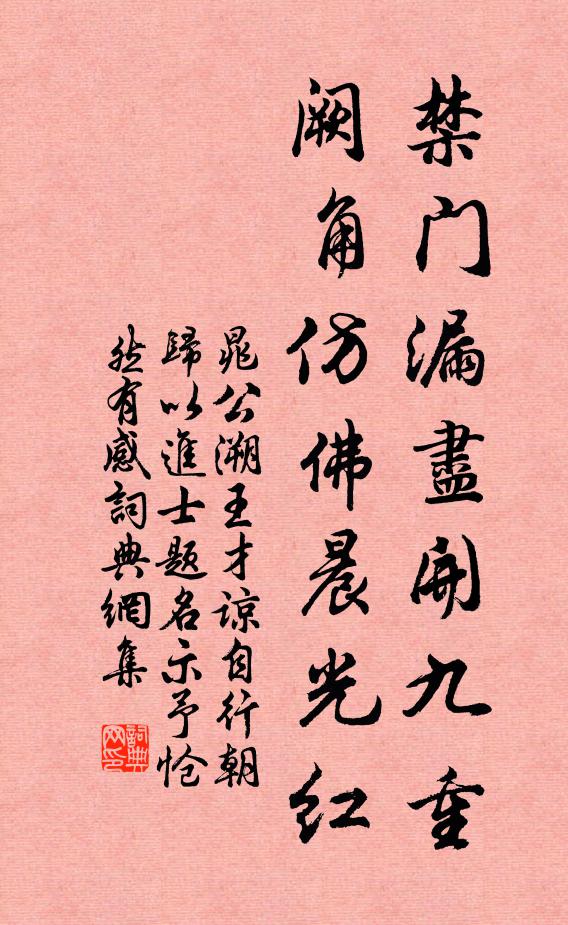 禁门漏盡開九重
阙角仿佛晨光红
晁公溯王才谅自行朝
歸以進士题名示予怆
然有感詞典網集
詞典网印